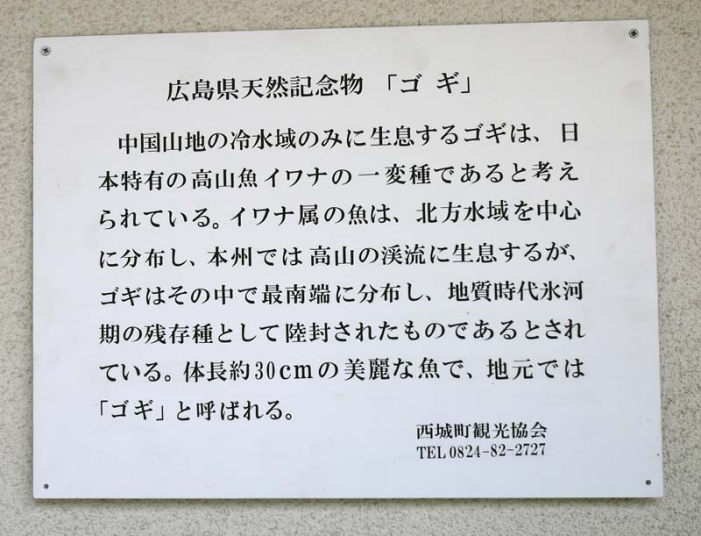 広島県天然記念物 「ゴギ」
中国山地の冷水域のみに生息するゴギは、日
本特有の高山魚イワナの一変種であると考え
られている。イワナ属の魚は、北方水域を中心
に分布し、本州では高山の渓流に生息するが、
ゴギはその中で最南端に分布し、地質時代氷河
期の残存種として陸封されたものであるとされ
ている。体長約30cmの美麗な魚で、地元では
「ゴギ」と呼ばれる。
西城町観光協会
TEL 0824-82-2727